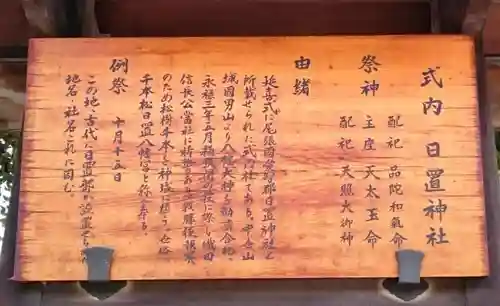 式内 日置神社
祭神
配祀 品陀和氣命
主座 天太玉命
配祀 天照大御神
由緒
延喜式に尾張國愛知郡日置神社と
所載せられた式内社である。中世山
城國男山より八幡大神を勧請合祀。
永禄三年五月桶狭間の役に際し織田
信長公當社に祈誓あり戦勝後報賽
のため松樹千本を神域に植う 世俗
千本松日置八幡宮と称え奉る。
例祭 十月十五日
この地、古代に日置部が設置せられ
地名・社名これに因む。